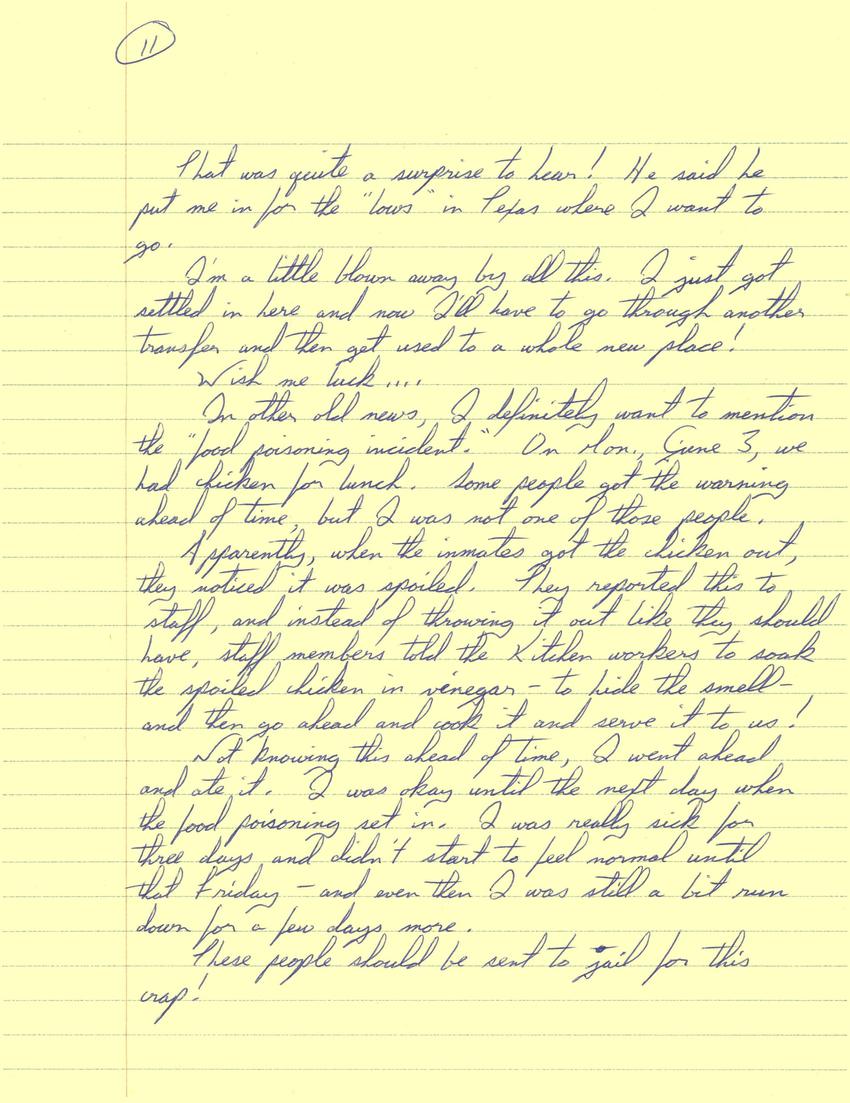 11
That was quite a surprise to hear! He said he
put me in for the "lows" in Texas where I want to
go.
I'm a little blown away by all this. I just got
settled in here and now I'll have to go through another
transfer and then get used to a whole new place!
Wish me luck....
In other old news, I definitely want to mention
the "food poisoning incident." On Mon., June 3, we
had chicken for lunch. Some people got the warning
ahead of time, but I was not one of those people.
Apparently, when the inmates got the chicken out,
they noticed it was spoiled. They reported this to
staff, and instead of throwing it out like they should
have, staff members told the kitchen workers to soak
the spoiled chicken in vinegar - to hide the smell -
and then go ahead and cook it and serve it to us!
Not knowing this ahead of time, I went ahead
and ate it. I was okay until the next day when
the food poisoning set in. I was really sick for
three days and didn't start to feel normal until
that Friday - and even then I was still a bit run
down for a few days more.
These people should be sent to jail for this
crap!